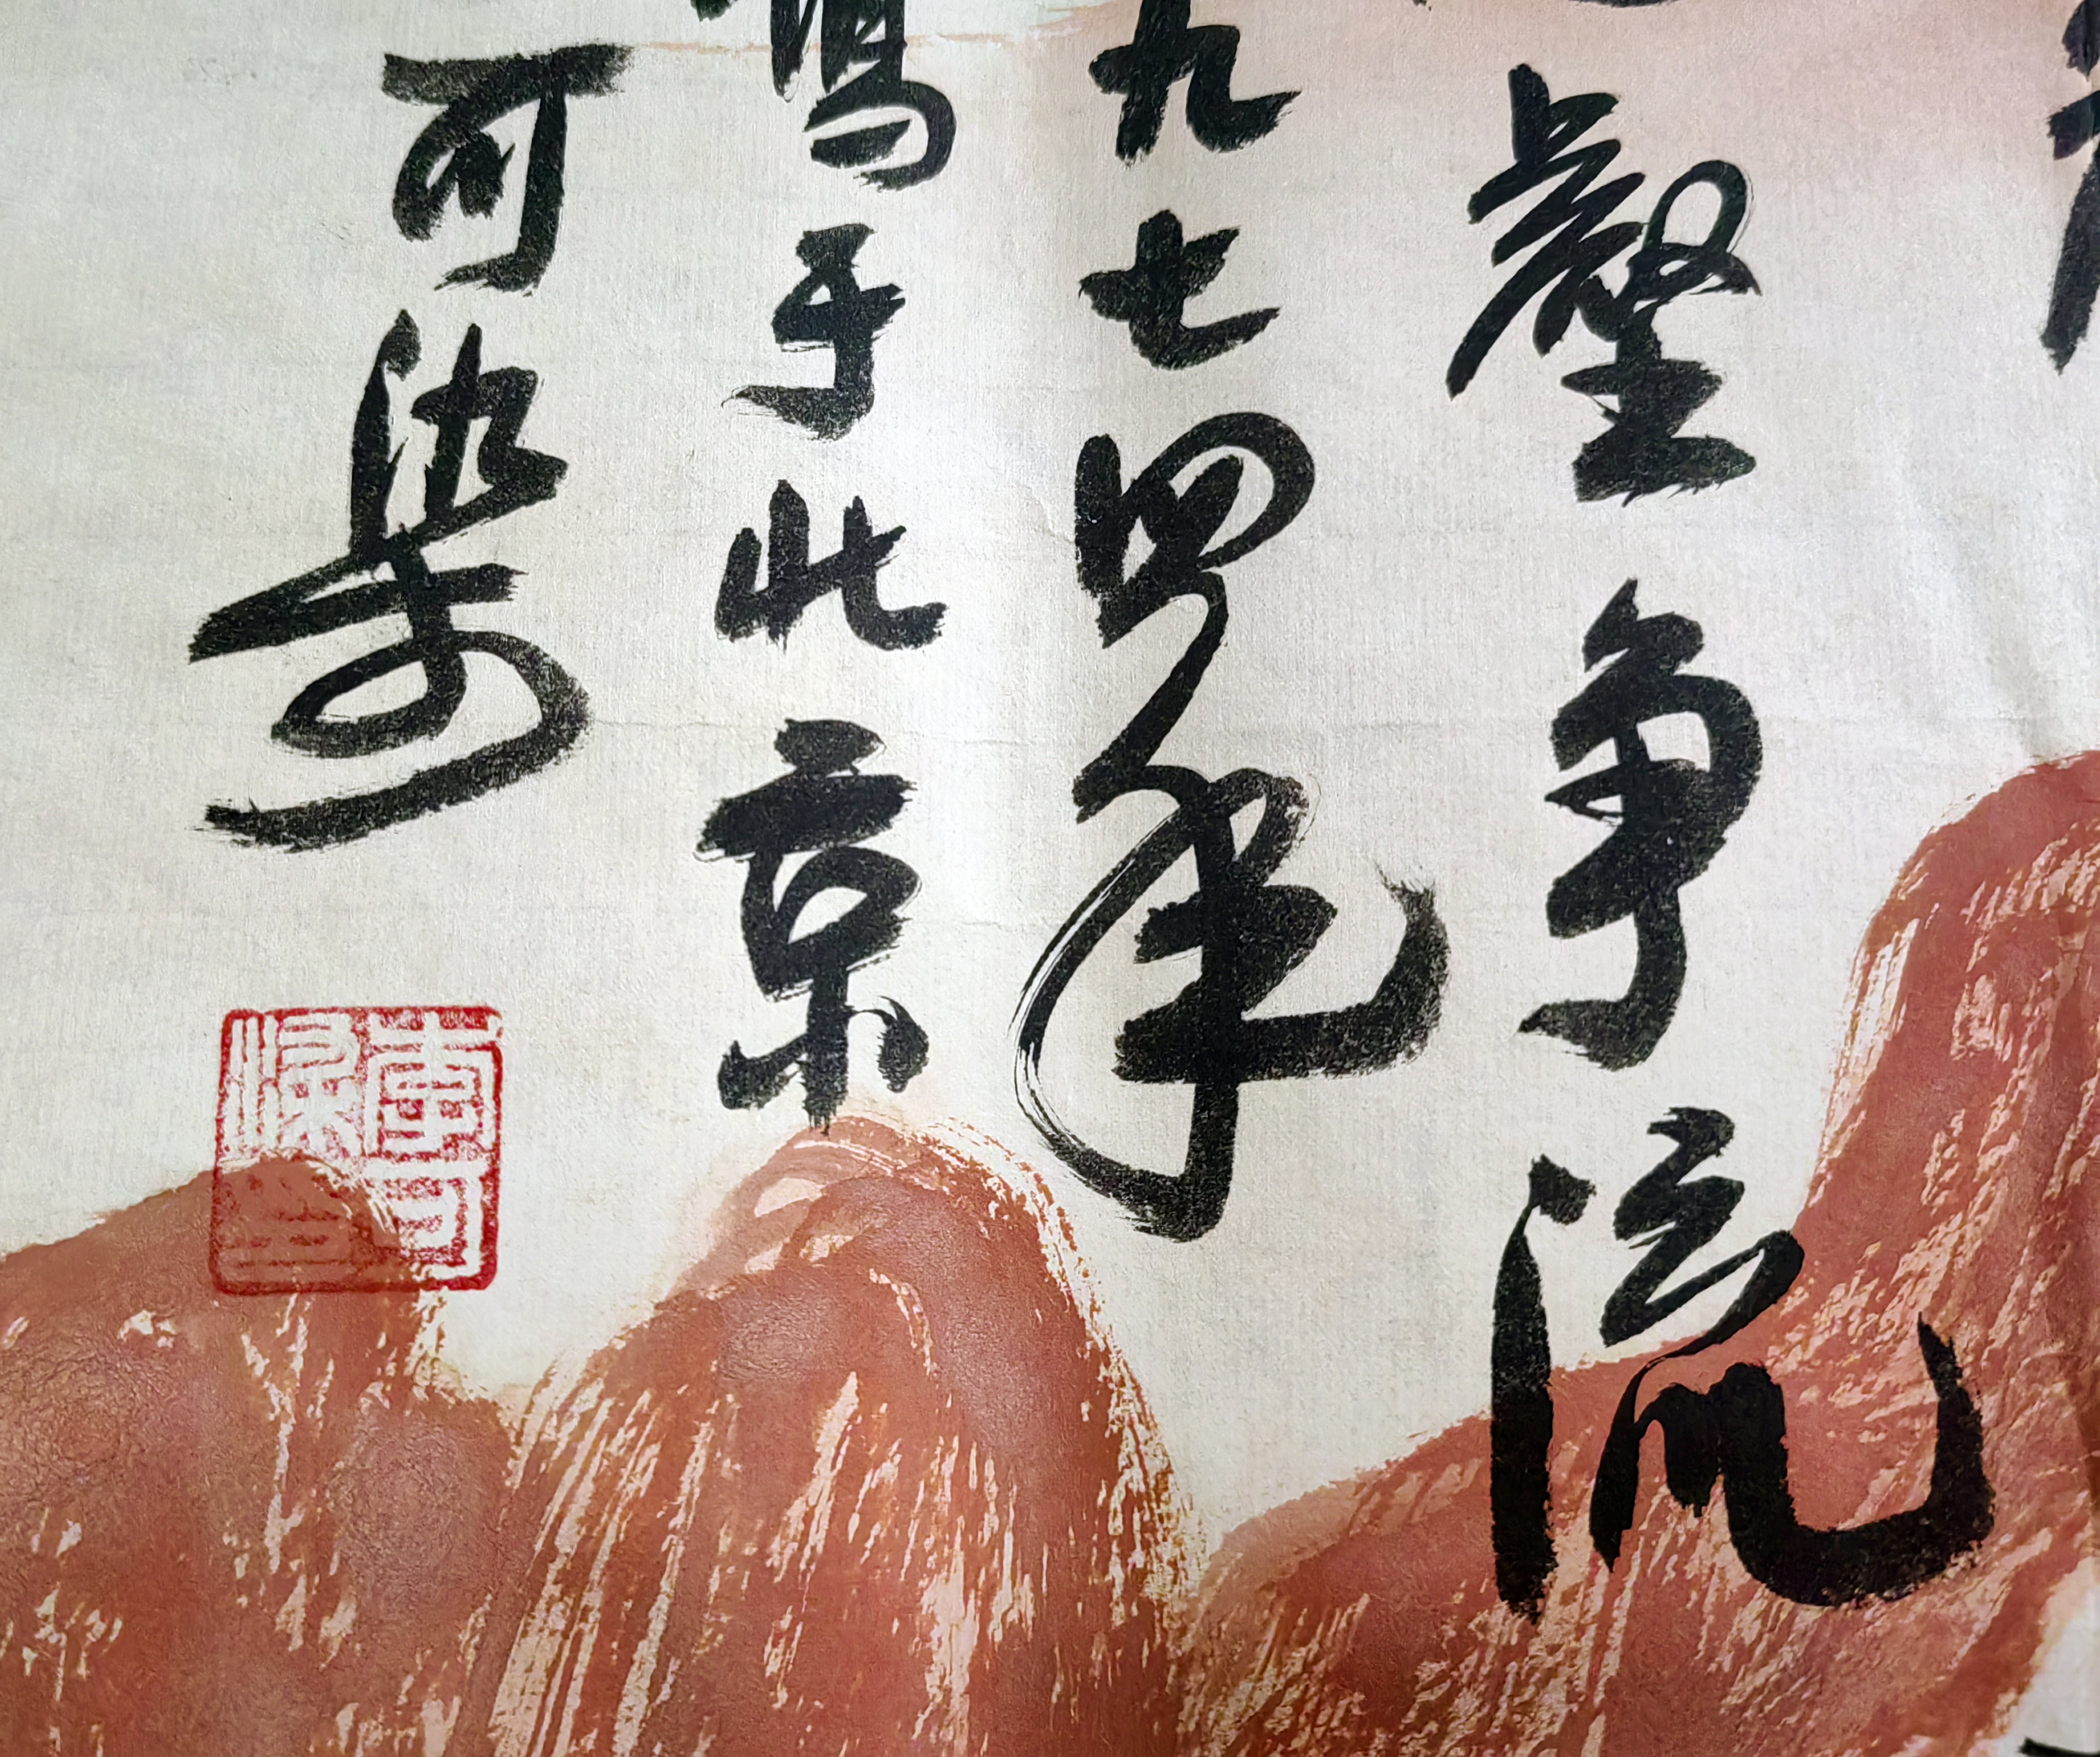 壑争流
九七四年
于北京
可染